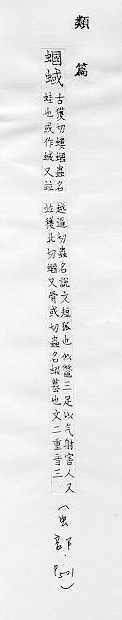 類篇
蟈蜮
古獲切螻蟈蟲名
蛙也或作蜮又竝
越逼切蟲名説文短狐也似鼈三足以气射害人又
竝獲北切蟈又骨或切蟲名蝦蟇也文二重音三
（虫部下・P501）